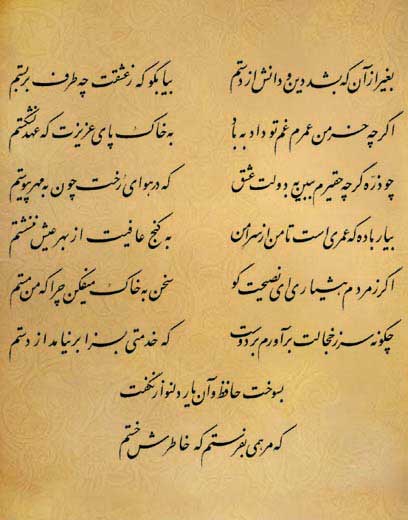 بغیر از آن که بشد دین و دانش از دستم بیا بگو که ز عشقت چه طرف بربستم
اگرچه خرمن عمرم غم تو داد به باد به خاک پای عزیزت که عهد نشکستم
چو ذرّه گرچه حقیرم ببین به دولت عشق که در هوای رخت چون به مهر پیوستم
بیار باده که عمری است تا من از سر امن به کنج عافیت از بهر عیش ننشستم
اگر ز مردم هشیاری ای نصیحت گو سخن به خاک میفکن چرا که من مستم
چگونه سر ز خجالت برآورم بر دوست که خدمتی بسزا برنیامد از دستم
بسوخت حافظ و آن یار دلنواز نگفت
که مرهمی بفرستم که خاطرش خستم